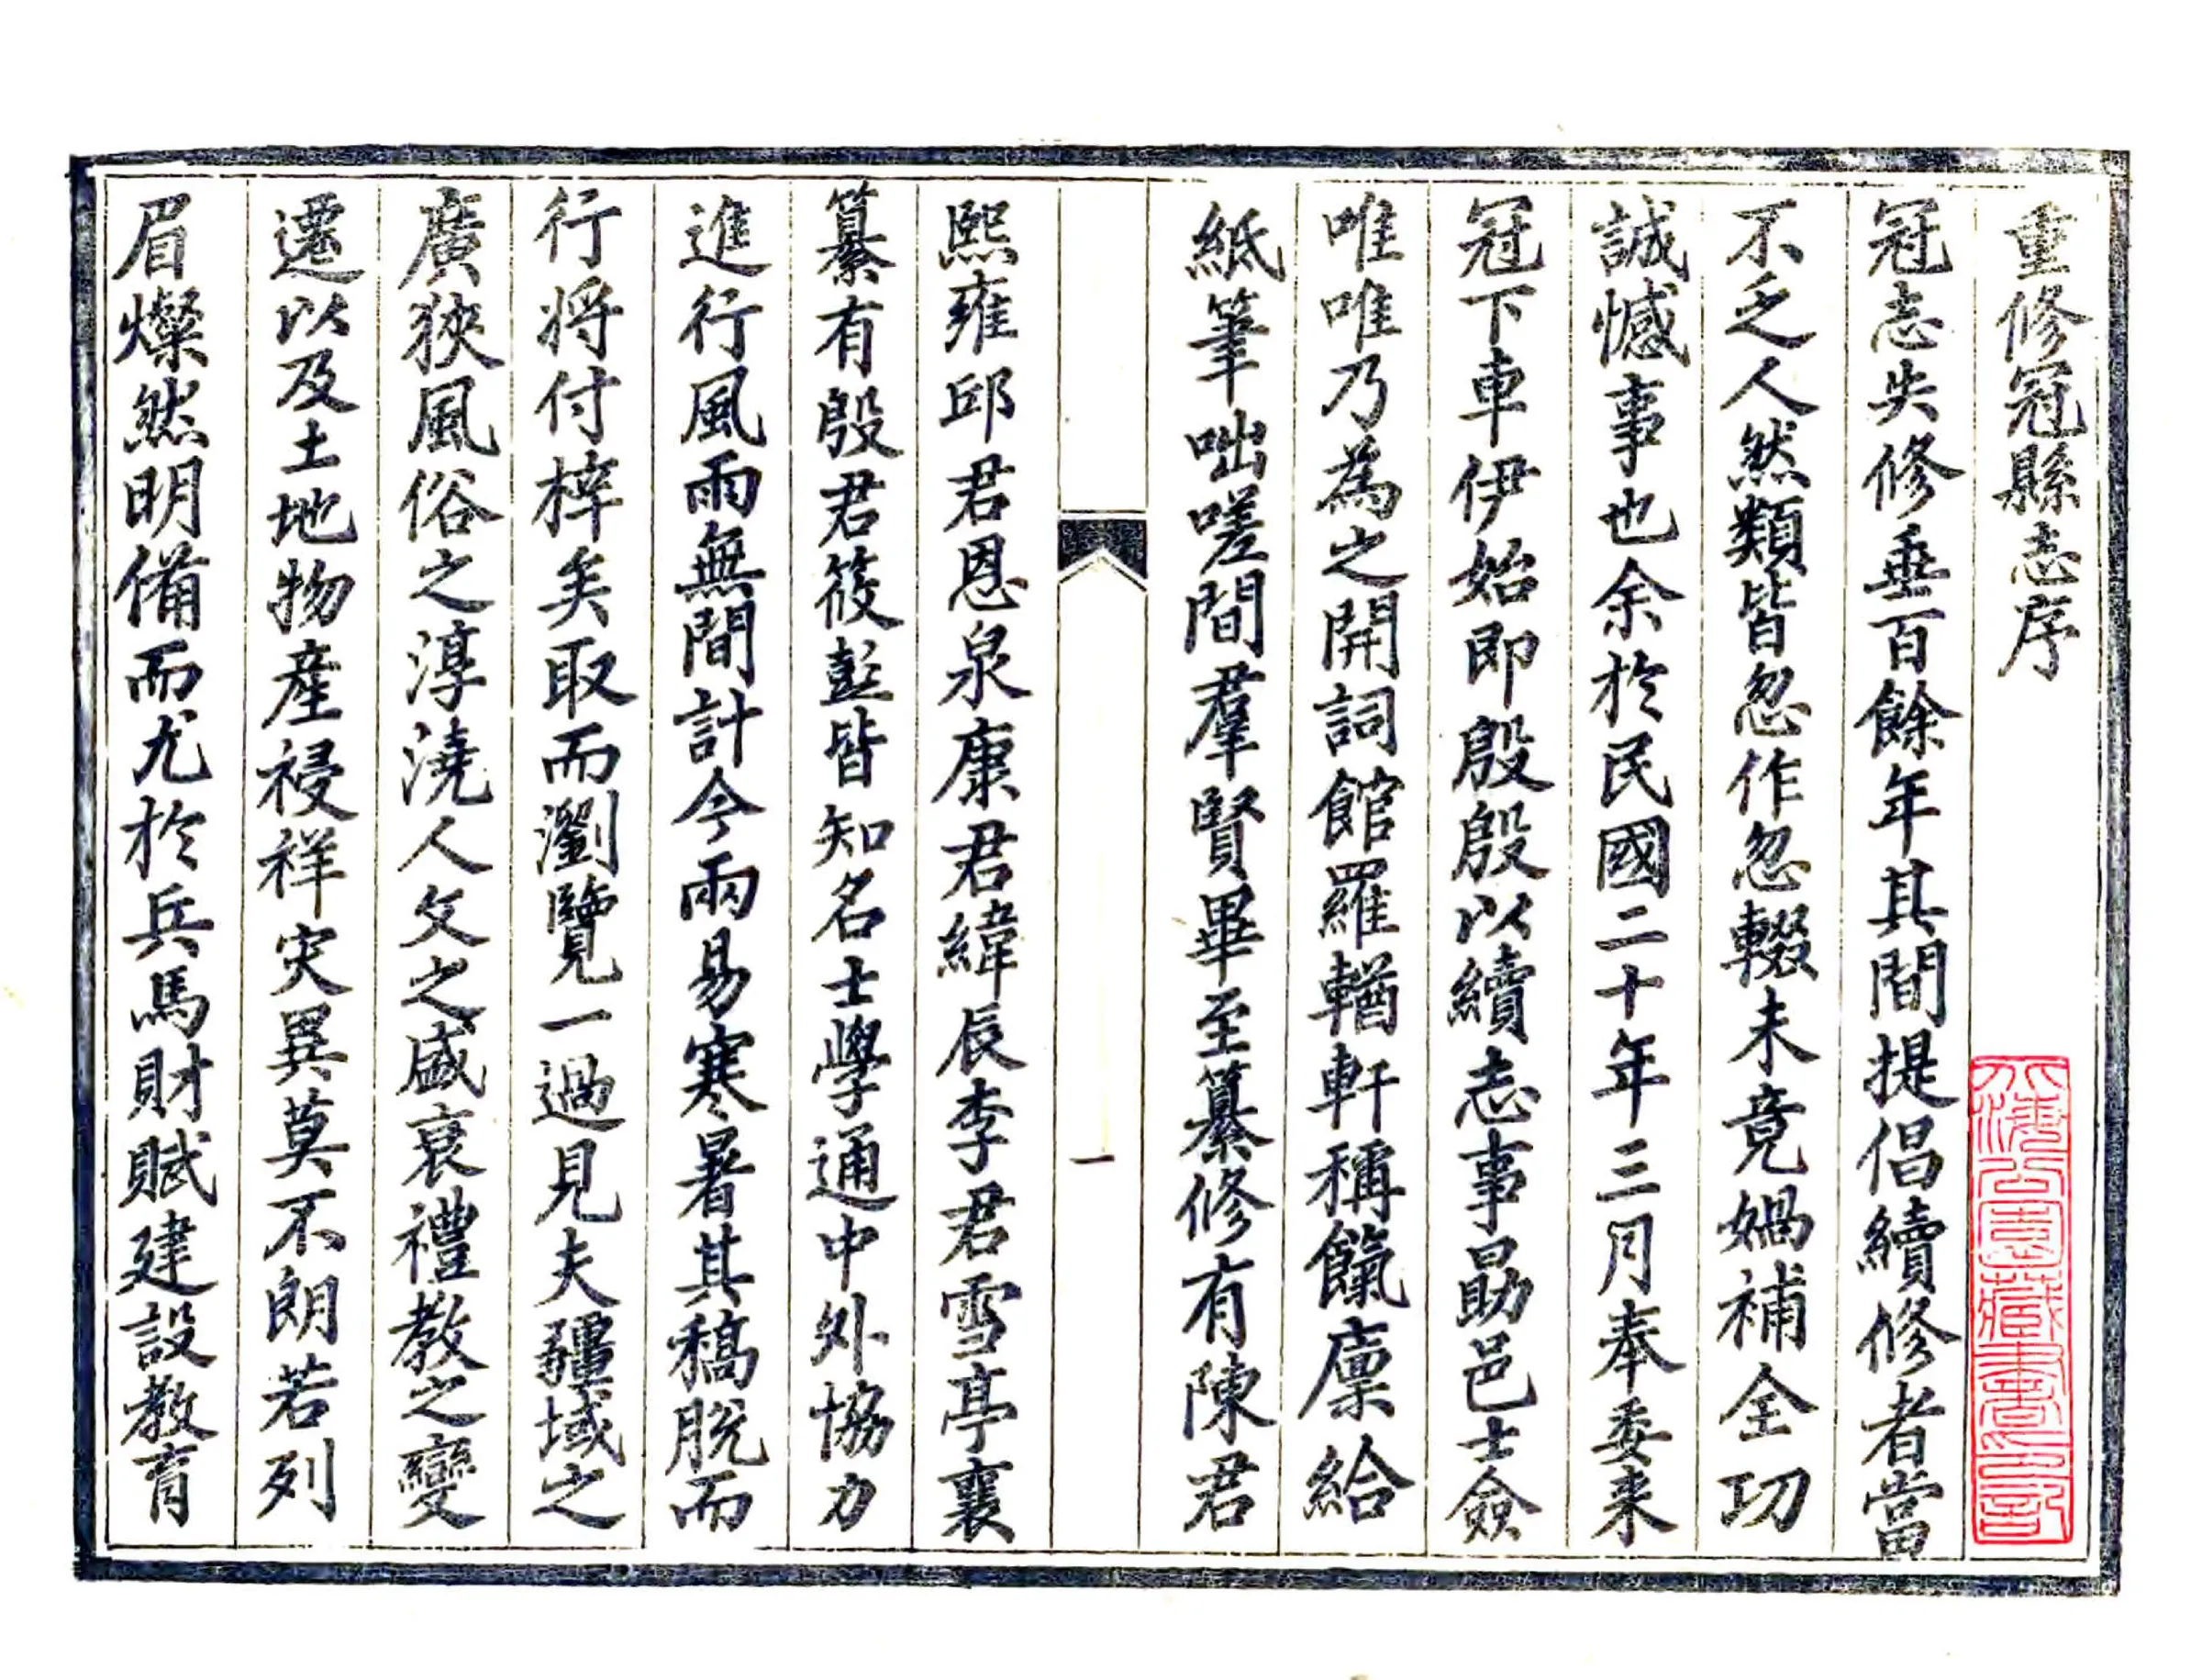 重修冠縣志序
冠志失修垂百餘年其間提倡續修者當
不乏人然類皆忽作忽輟未竟媧補全功
誠憾事也余於民國二十年三月奉委来
冠下車伊始即殷殷以續志事勗邑士僉
唯唯乃為之開詞館羅輶軒稱餼廩給
紙筆咄嗟間羣賢畢至纂修有陳君
一
熙雍邱君恩泉康君緯辰李君雪亭襄
纂有殷君筱彭皆知名士學通中外協力
進行風雨無間計今兩易寒暑其稿脱而
行将付梓矣取而瀏覽一過見夫疆域之
廣狹風俗之淳澆人文之盛衰禮教之變
遷以及土地物產祲祥灾異莫不朗若列
眉燦然明備而尤於兵馬財賦建設教育